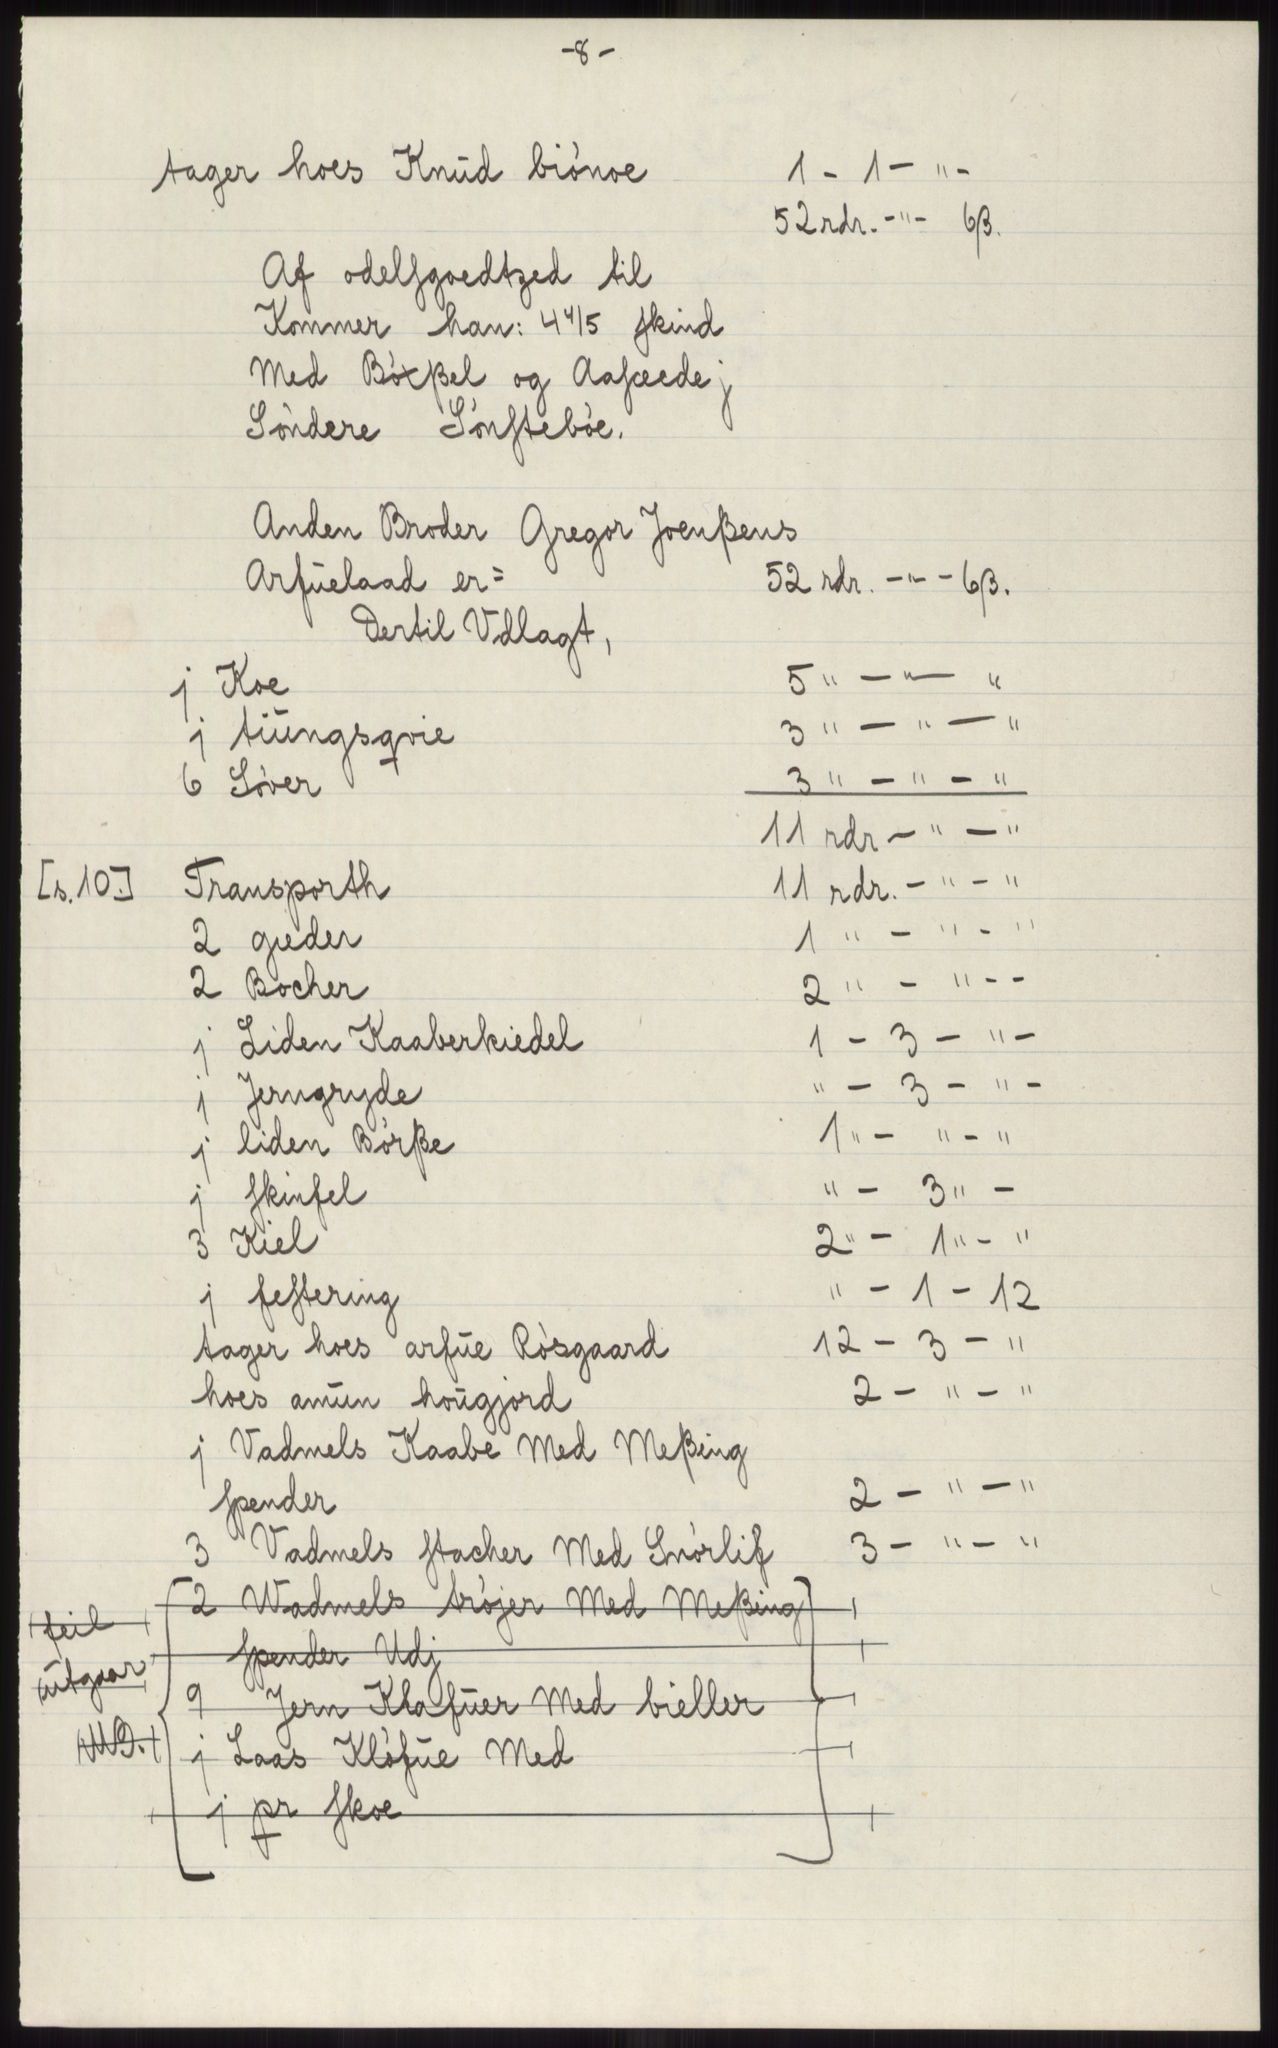 -8-
tager hoes Knūd biònoe 1 - 1 - " -
52 rdr. - " - 6β.
Af odelsgoedtzed til
Kommer han: 4 4/5 skind
Med Bòxβel og Aasæde j
Sòndere Sònstebòe.
Anden Broder Gregor Joenβens
Arfūelaad er= 52 rdr. - " - 6β.
Dertil Vdlagt,
j Koe 5 " - " - "
j tiūngsqvie 3 " - " - "
6 Sòver 3 " - " - "
11 rdr - " - "
[s. 10.] Transporth 11 rdr. - " - "
2 gieder 1 " - " - "
2 Bocher 2 " - " - -
j Liden Kaaberkiedel 1 - 3 - " -
j Jerngryde " - 3 - " -
j liden Bòrβe 1 " - " - "
j skinfel " - 3 " -
3 Kiel 2 " - 1 " - "
j festering " - 1 - 12
tager hoes arfūe Ròsgaard 12 - 3 - "
hoes amūn hoūgjord 2 - " - "
j Vadmels Kaabe Med Meβing
spender 2 - " - "
3 Vadmels stacher Med Snòrlif 3 - " - "
2 Wadmels tròjer Med Meβing
feil
spender Udj
ūtgaar
9 Jern Klafūer Med bieller
j Laas Klòfūe Med
j pr skoe